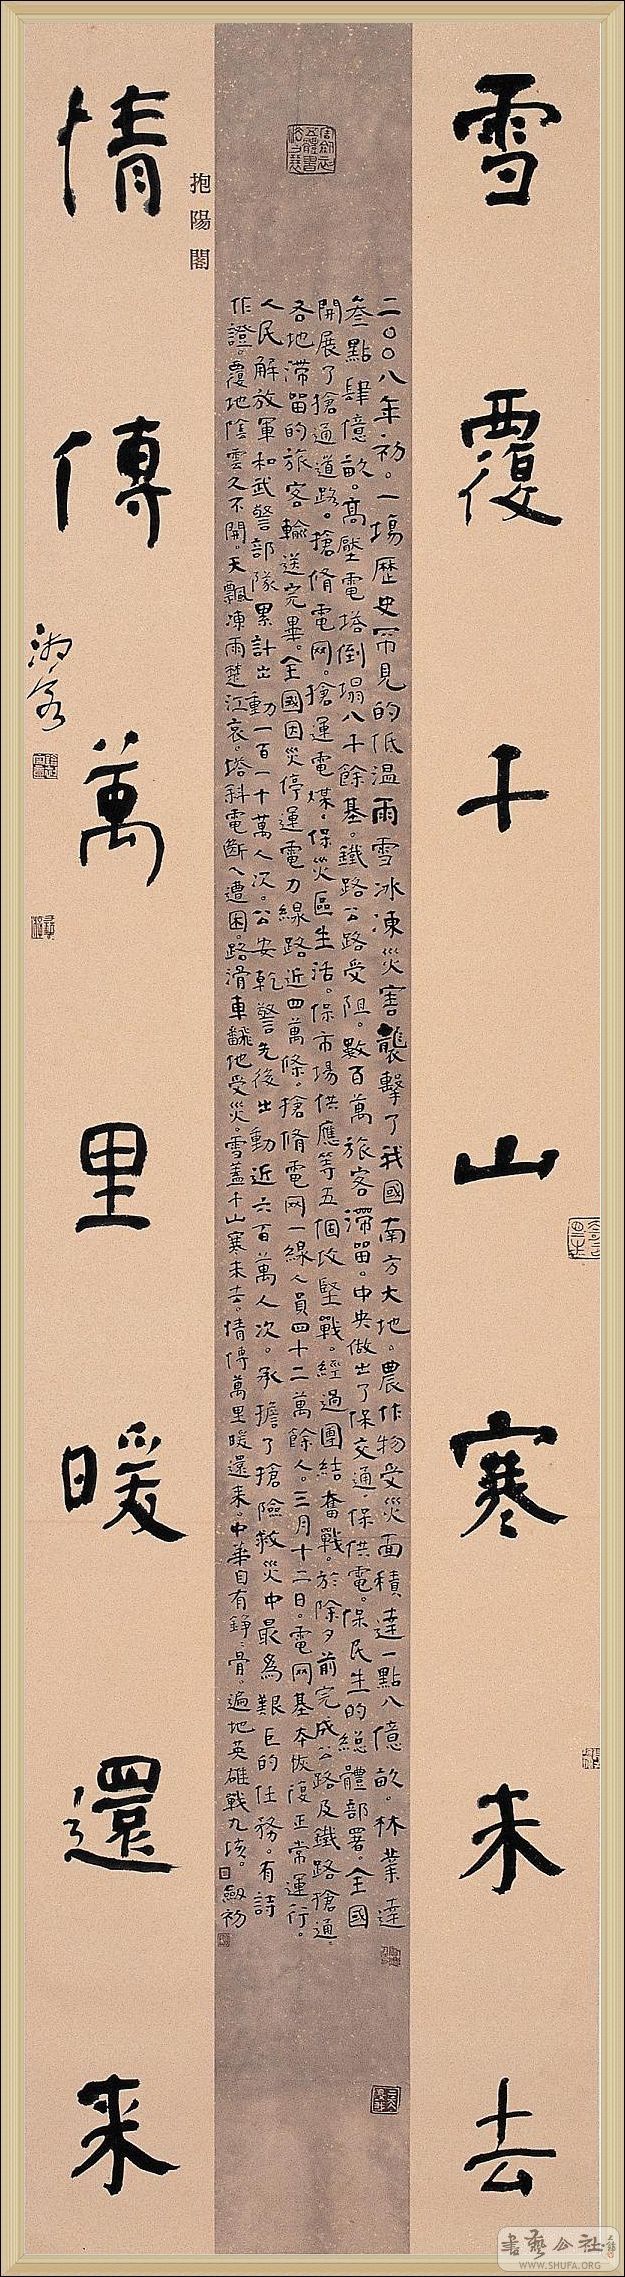 雪覆千山寒未去
二〇〇八年初。一場歷史罕見的低温雨雪冰凍災害襲擊了我國南方大地。農作物受災面積達一點八億畝。林業達
叁點肆億畝。高壓電塔倒塌八千餘基。鐵路公路受阻。數百萬旅客滯留。中央做出了保交通。保供電。保民生的總體部署。全國
開展了搶通道路。搶修電网。搶運電煤。保災區生活。保市場供應等五個攻堅戰。經過團結奮戰。於除夕前完成公路及鐵路搶通。
各地滯留的旅客輸送完畢。全國因災停運電力線路近四萬條。搶脩電网一線人員四十二萬餘人。三月十二日。電网基本恢復正常運行。
人民解放軍和武警部隊累計出動一百一十萬人次。公安乾警先後出動近六百萬人次。承擔了搶險救災中最爲艱巨的任務。有詩
作證。覆地陰雲久不開。天飄凍雨楚江哀。塔斜電斷人遭困。路滑車翻他受災。雪蓋千山寒未去。情傳萬里暖還来。中華自有錚錚骨。遍地英雄戰九垓。劍初
抱陽閣
情傳萬里暖還来
湘客
書藝公社
WWW.SHUFA.ORG